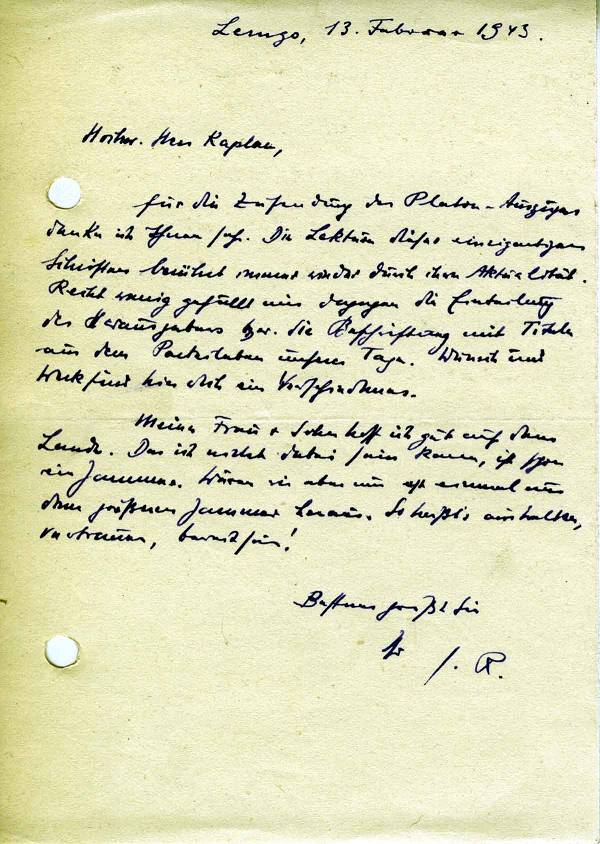 Lemgo, 13. Februar 1943.
Hochw. Herr Kaplan,
für die Zusendung des Platon-Auszuges
danke ich Ihnen sehr. Die Lektüre dieses einzigartigen
Schrifttums berührt immer wieder durch ihre Aktualität.
Recht wenig gefällt mir dagegen die Einteilung
des Herausgebers bzw. die Beschriftung mit Titeln
aus dem Parteileben unserer Tage. Wunsch und
Werk sind hier doch ein Verschiedenes.
Meine Frau + Sohn hoff ich gut auf dem
Lande. Daß ich nicht dabei sein kann, ist schon
ein Jammer. Wären wir aber nur erst einmal aus
dem größeren Jammer heraus. So heißt's aushalten,
vertrauen, bereit sein!
Bestens grüßt Sie
Ihr J. R.